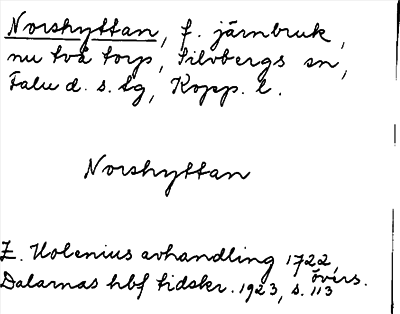 Norshyttan, f. järnbruk,
nu två torp, Silvbergs sn,
Falu d. s. tg, Kopp. l.
Norshyttan
Z. Holenius avhandling 1722,
övers.
Dalarnas hbf tidskr. 1923, s. 113